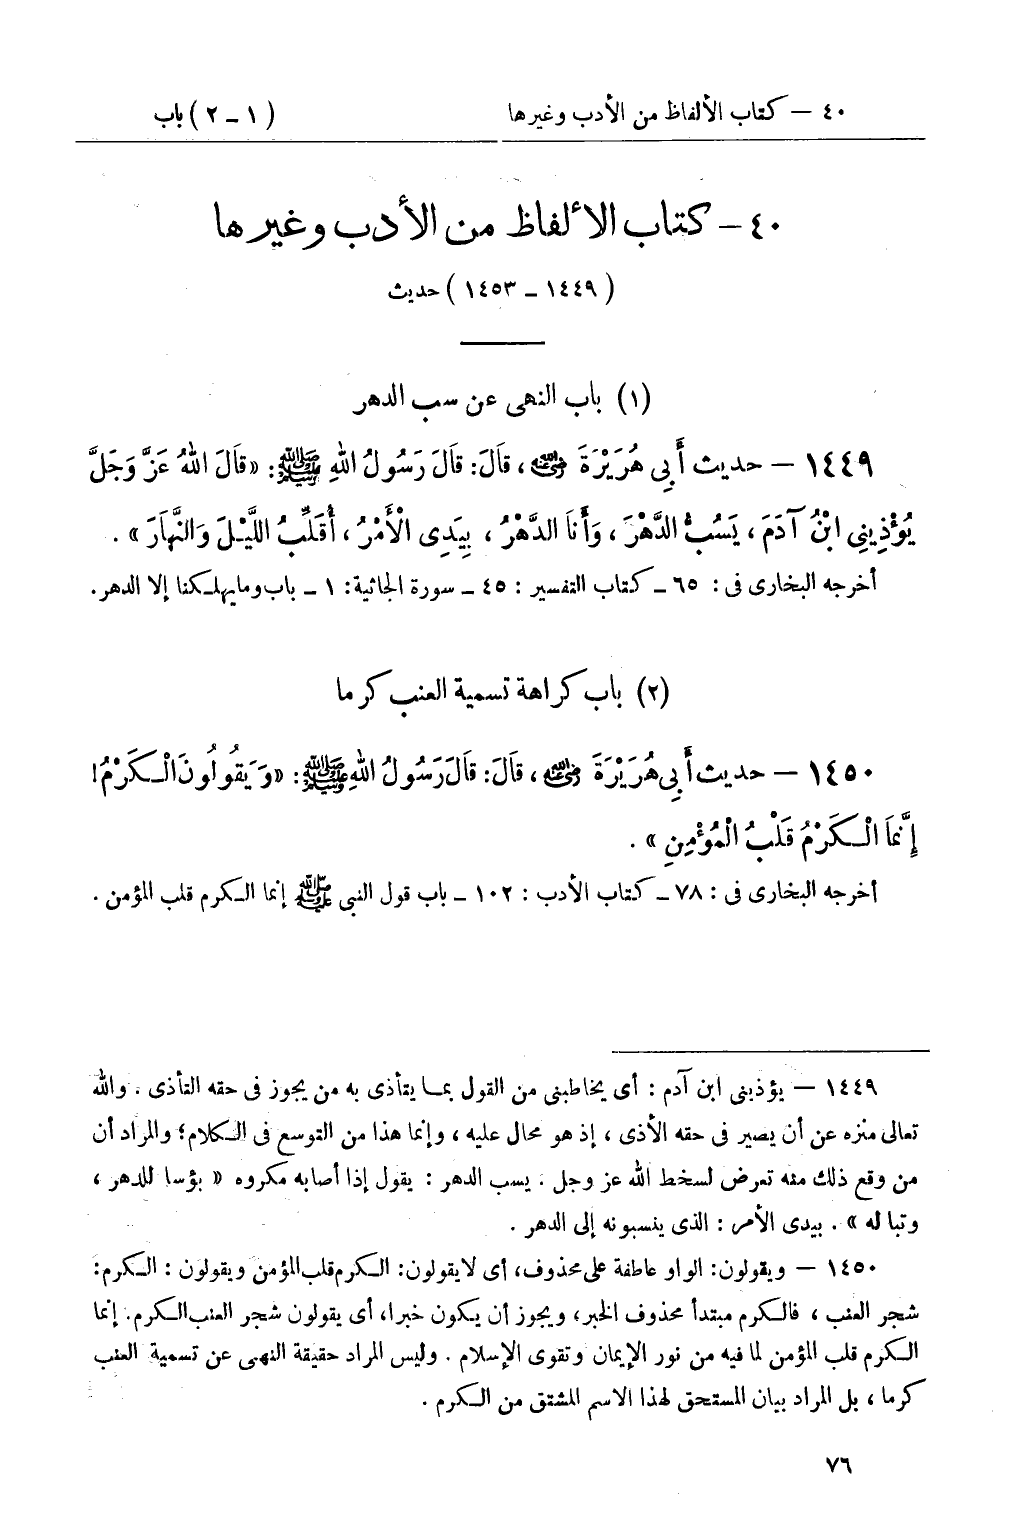 ٤٠ — كتاب الألفاظ من الأدب وغيرها (١ - ٢) باب
٤٠ - كتاب الألفاظ من الأدب وغيرها
(١٤٤٩ - ١٤٥٣) حديث
(١) باب النهى عن سب الدهر
١٤٤٩ — حديث أَبِى هُرَيْرَةَ رضي الله عنه، قَالَ: قَالَ رَسُولُ اللهِ ﷺ: «قَالَ اللهُ عَزَّ وَجَلَّ
يُؤْذِينِى ابْنُ آدَمَ، يَسُبُّ الدَّهْرَ، وَأَنَا الدَّهْرُ، بِيَدِى الْأَمْرُ، أُقَلِّبُ اللَّيْلَ وَالنَّهَارَ».
أخرجه البخارى فى: ٦٥ - كتاب التفسير: ٤٥ - سورة الجاثية: ١ - باب وما يهلكنا إلا الدهر.
(٢) باب كراهة تسمية العنب كرما
١٤٥٠ — حديث أَبِى هُرَيْرَةَ رضي الله عنه، قَالَ: قَالَ رَسُولُ اللهِ ﷺ: «وَيَقُولُونَ الْكَرْمُ!
إِنَّمَا الْكَرْمُ قَلْبُ الْمُؤْمِنِ».
أخرجه البخارى فى: ٧٨ - كتاب الأدب: ١٠٢ - باب قول النبى ﷺ إنما الكرم قلب المؤمن.
١٤٤٩ — يؤذينى ابن آدم: أى يخاطبنى من القول بما يتأذى به من يجوز فى حقه التأذى. والله
تعالى منزه عن أن يصير فى حقه الأذى، إذ هو محال عليه، وإنما هذا من التوسع فى الكلام؛ والمراد أن
من وقع ذلك منه تعرض لسخط الله عز وجل. يسب الدهر: يقول إذا أصابه مكروه «بؤسا للدهر،
وتبا له». بيدى الأمر: الذى ينسبونه إلى الدهر.
١٤٥٠ — ويقولون: الواو عاطفة على محذوف، أى لا يقولون: الكرم قلب المؤمن ويقولون: الكرم:
شجر العنب، فالكرم مبتدأ محذوف الخبر، ويجوز أن يكون خبرا، أى يقولون شجر العنب الكرم. إنما
الكرم قلب المؤمن لما فيه من نور الإيمان وتقوى الإسلام. وليس المراد حقيقة النهى عن تسمية العنب
كرما، بل المراد بيان المستحق لهذا الاسم المشتق من الكرم.
٧٦